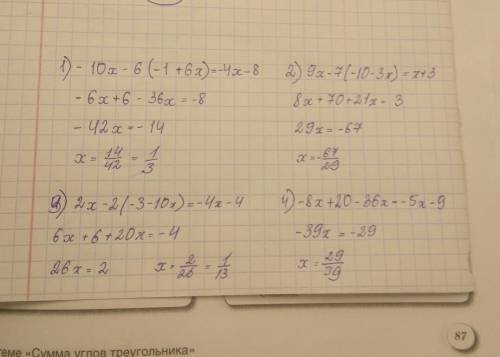 1) - 10x - 6 (-1 + 6x) = -4x - 8
- 6x + 6 - 36x = -8
- 42x = - 14
x = 14/42 = 1/3
2) 9x - 7 (-10 - 3x) = x + 3
8x + 70 + 21x - 3
29x = -67
x = - 67/29
3) 2x - 2 (-3 - 10x) = -4x - 4
6x + 6 + 20x = -4
26x = 2 x = 2/26 = 1/13
4) -8x + 20 - 36x = -5x - 9
-39x = -29
x = 29/39
87
теме «Сумма углов треугольника»